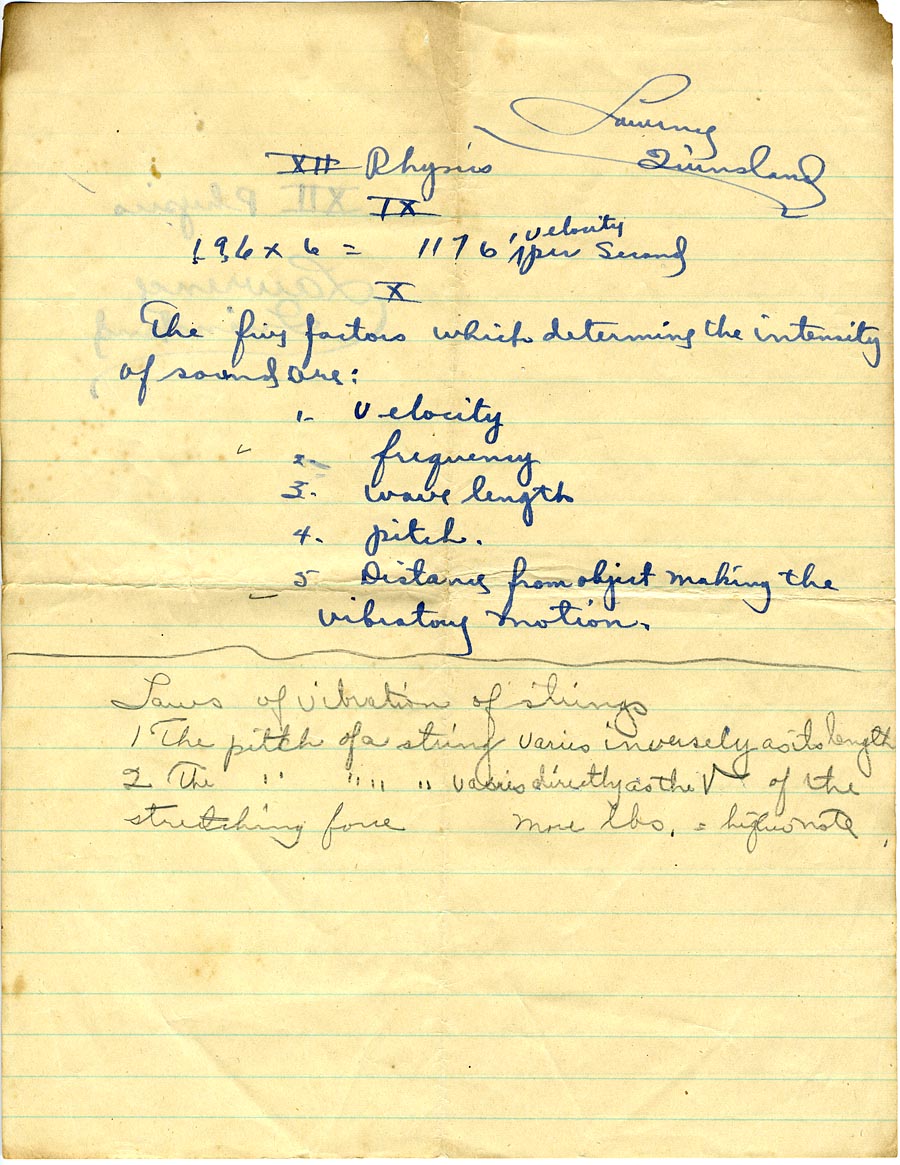 Lawrence
XII Physics Quinsland
IX
196 x 6 = 1176' velocity
per Second
X
The five factors which determine the intensity
of sound are:
1- Velocity
2- frequency
3- wave length
4- pitch.
5 Distance from object making the
vibratory motion.
Laws of vibration of strings
1 The pitch of a string varies inversely as its length
2 The " " " " " varies directly as the √ of the
stretching force more lbs. = higher note